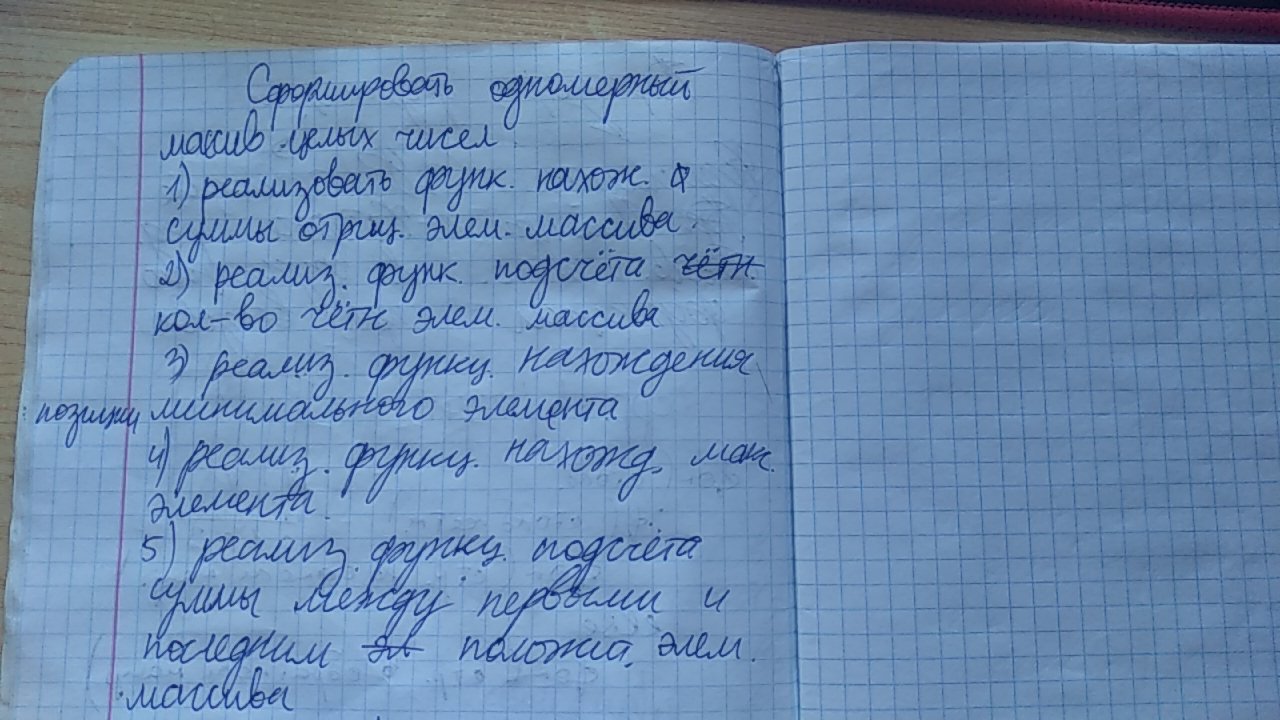 Сформировать одномерный
массив целых чисел
1) реализовать функ. нахож.
суммы отриц. элем. массива
2) реализ. функ. подсчёта чётн
кол-во чётн элем. массива
3) реализ. функц. нахождения
позиции минимального элемента
4) реализ. функц. нахожд. мак.
элемента.
5) реализ. функц. подсчёта
суммы между первыми и
последним эл положит. элем.
массива